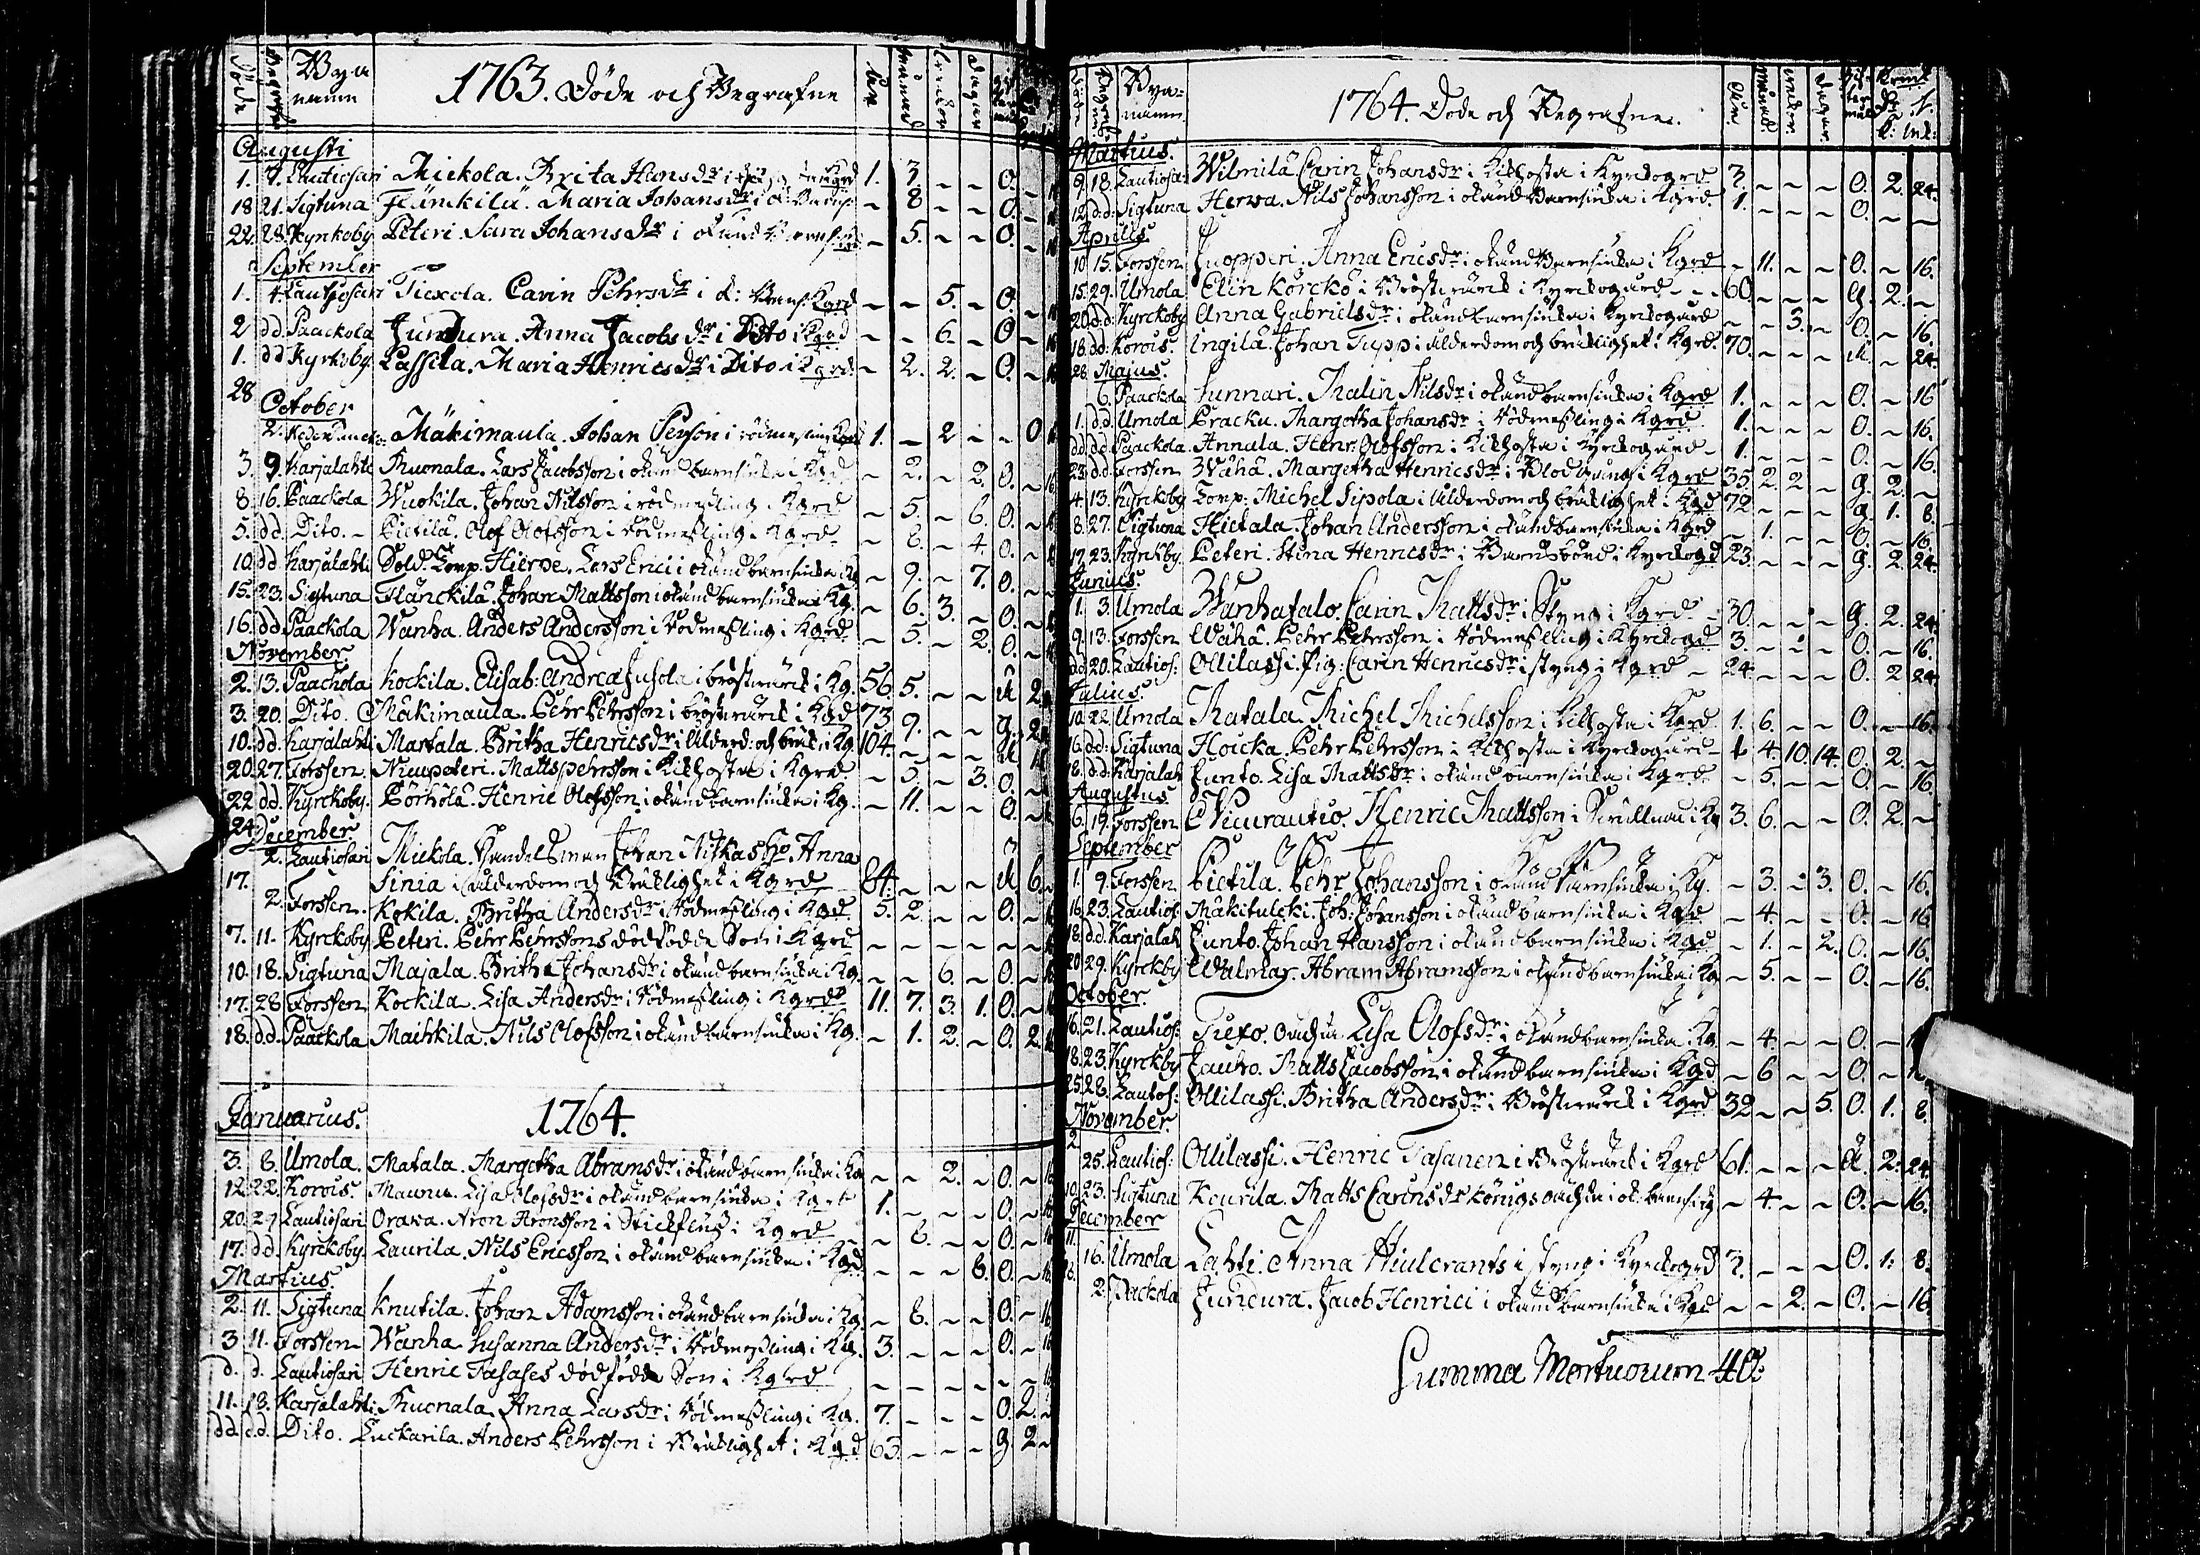 Döde
Begrafne
Bya namn
1763. Döde och Begrafne
åhr
månad
weckor
dagar
Augusti
1. 7. Lautiosari Mickola. Brita Hansdr i Kgrd 1. 3 - - 0.
18 21. Sigtuna Flänckilä. Maria Johansdr i - 8 - - 0.
22. 28. Kyrkoby Peteri. Sara Johansdr i okänd barnsiuka - 5. - - 0.
September
1. 4 Lautiosari Tiexola. Carin Pehrsdr i Kgrd - - 5. - 0.
2 dd Paackola Junkura. Anna Jacobsdr i Dito i Kgrd - - 6. - 0
1. dd Kyrkoby Lassila. Maria Henricsdr i Dito i Kgrd - 2. 2. - 0.
28
October
2. Mäkimaula. Johan Persson i rödmesling Kgrd 1. - 2 - - 0
3. 9. Karjalahti Ruonala. Lars Jacobsson i okänd barnsiuka i Kgrd - 2. - 2. 0.
8. 16. Paackola Wuokila. Johan Nilsson i rödmesling i Kgrd - 5. - 6. 0.
5. dd. Dito. - Pietilä. Olof Olofsson i rödmesling i Kgrd - 8. - 4. 0.
10. dd Karjalahti Sold. Corp. Hierpe. Lars Erici i okänd barnsiuka i Kg - 9. - 7. 0.
15. 23. Sigtuna Flänckilä. Johan Mattsson i okänd barnsiuka i Kg. - 6. 3. - 0.
16. dd. Paackola Wanha. Anders Andersson i Rödmesling i Kgrd - 5. - 2. 0.
November
2. 13. Paackola Kockila. Elisab: Andreæ Jusola i bröstwärck i Kg. 56. 5. - - Ä 2
3. 20. Dito. Mäkimaula. Pehr Pehrsson i bröstwärck i Kgd 73 9. - - g. 2
10. dd. Karjalahti Martala. Britha Henricsdr i Ålderd: och bräcklighet i Kg. 104. - - - Ä
20. 27. Forssen. Niempeteri. Matts Pehrsson i Kikhosta i Kgrd. - 5. - 3. 0.
22 dd. Kyrckoby. Pörhölä. Henric Olofsson i okänd barnsiuka i Kg. - 11. - - 0.
24.
December
2. Lautiosari Mickola. Handelsman Johan Niskas Ho. Anna
17. Sinia i Ålderdom och Bräcklighet i Kgrd 84. - - - Ä 6.
2. Forssen. Kokila. Britha Andersdr i Rödmesling i Kgd. 5. 2. - - 0.
7. 11. Kyrckoby Peteri. Pehr Pehrssons dödfödde Son i Kgrd - - - - -
10. 18. Sigtuna Majala. Britha Johansdr i okänd barnsiuka i Kg. - - 6. - 0.
17. 28 Forssen Kockila. Lisa Andersdr i Rödmesling i Kgrd 11. 7. 3. 1. 0.
18. dd. Paackola Machkila. Nils Olofsson i okänd barnsiuka i Kg. - 1. 2. - 0. 2.
Januarius. 1764.
3. 8. Umola. Matala. Margetha Abramsdr i okänd barnsiuka i Kg - - 2. - 0.
12. 22. Korois. Maunu. Lisa Olofsdr i okänd barnsiuka i Kgrd 1. - - - 0.
20. 29 Lautiosari Orawa. Aron Aronsson i Stickfluss i Kgrd - 8. - - 0.
17. dd. Kyrckoby. Laurila. Nils Ericsson i okänd barnsiuka i Kgd. - - - 6. 0.
Martius.
2. 11. Sigtuna Knutila. Johan Adamsson i okänd barnsiuka i Kg. - 8. - - 0. - 16
3. 11. Forssen Wanha Susanna Andersdr i Rödmesling i Kg. 3. - - - 0. - 16
d. d. Lautiosari Henric Tasases dödfödde Son i Kgrd - - - - - -
11. 18. Karjalahti Ruonala Anna Larsdr i Rödmesling i Kg. 7. - - - 0. 2.
dd. dd. Dito. Luckarila. Anders Pehrsson i Bräcklighet i Kgd 63. - - - g 2
Bya- namn.
1764. Döde och Begrafne.
åhr.
månad.
weckor
dagar
Martius.
9. 18. Lautiosa: Wilmilä Carin Johansdr i Kikhosta i Kyrckogrd 3. - - - 0. 2. 24.
12. dd. Sigtuna Herwa. Nils Johansson i okänd Barnsiuka i Kgrd 1. - - - 0. - -
Aprilis
10. 15. Forssen Juopperi. Anna Ericsdr i okänd Barnsiuka i Kgrd - 11. - - 0. - 16.
15. 29. Umola Elin Körckö i Bröstwärck i Kyrckogård - - 60 - - - g. 2. -
20. dd. Kyrckoby Anna Gabrielsdr i okänd barnsiuka i Kyrckogård - - 3. - 0. - 16.
18. dd. Korois. Ingilä. Johan Tupp i Ålderdom och bräcklighet i Kgrd. 70. - - - Ä. - 24.
28. Majus.
6. Paackola Sunnari. Malin Nilsdr i okänd barnsiuka i Kgrd 1. - - - 0. - 16
1. dd. Umola Pracku. Margetha Johansdr i Rödmesling i Kgrd 1. - - - 0. - 16.
dd. dd. Paackola Annala. Henr. Olofsson i Kikhosta i Kyrckogård - 1. - - - 0. - 16.
23. dd. Forssen Wähä. Margetha Henricsdr i Blodgång i Kgrd 35. 2. 2. - g. 2. -
4. 13. Kyrckoby Corp. Michel Sipola i Ålderdom och bräcklighet i Kgd 72 - - - g 1. 8.
8. 27. Sigtuna Hietala. Johan Andersson i okänd barnsiuka i Kgrd - 1. - - 0. - 16.
17. 23. Kyrckby Peteri. Stina Henricsdr i Barnsbörd i Kyrckogd 23. - - - g. 2. 24.
Junius.
1. 3. Umola Wanhatalo. Carin Mattsdr i Styng i Kgrd - 30. - - - g. 2. 24.
9. 13. Forssen Wähä. Pehr Pehrsson i Rödmesling i Kyrckogd 3. - - - 0. - 16.
dd. 20. Lautios: Ollilassi. Pig: Carin Henricsdr i styng i Kgrd - 24. - - - 0. 2 24.
Julius.
10. 22. Umola Matala. Michel Michelsson i Kikhosta i Kgrd. 1. 6. - - 0. - 16.
16. dd. Sigtuna Hoicka. Pehr Pehrsson i Kikhosta i Kyrckogård - 4. 10. 14. 0. 2. -
18. dd. Karjalah Junto. Lisa Mattsdr i okänd barnsiuka i Kgrd - 5. - - 0. - 16.
Augustus
6. 19. Forssen Niurautio. Henric Mattsson i Kg 3. 6. - - 0. 2. -
September
1. 9. Forssen Pietila. Pehr Johansson i okänd Barnsiuka i Kg. - 3. - 3. 0. - 16.
16. 23. Lautios: Mäkitulcki. Joh: Johansson i okänd barnsiuka i Kgrd - 4. - - 0. - 16.
18. dd. Karjalah Junto. Johan Hansson i okänd barnsiuka i Kgd - 1. - 2. 0. - 16.
20. 29. Kyrckby Walmar. Abram Abramsson i okänd barnsiuka i Kg - 5. - - 0. - 16.
October.
16. 21. Lautios: Tiexo. oächta Lisa Olofsdr i okänd barnsiuka i Kg - 4. - - 0. -
18. 23. Kyrckby Jautro. Matts Jacobsson i okänd barnsiuka i Kgd - 6 - - 0. -
25. 28. Lautos: Ollilassi. Britha Andersdr i Bröstwärck i Kgrd 32 - - 5. 0. 1. 8.
November.
2
25. Lautios: Ollilassi. Henric Tasanen i Bröstwärck i Kgrd 61. - - - Ä. 2. 24.
10. 23. Sigtuna Kourila. Matts Carinsdr Königs oächta i ok: barnsiuk - 4. - - 0. - 16.
December
11.
16. Umola Lahti. Anna Hiulcrants i styng i Kyrckogrd 3. - - - 0. 1. 8.
2. Packola Juncura. Jacob Henrici i okänd barnsiuka i Kgd - - 2. - 0. - 16.
Summa Mortuorum 40.